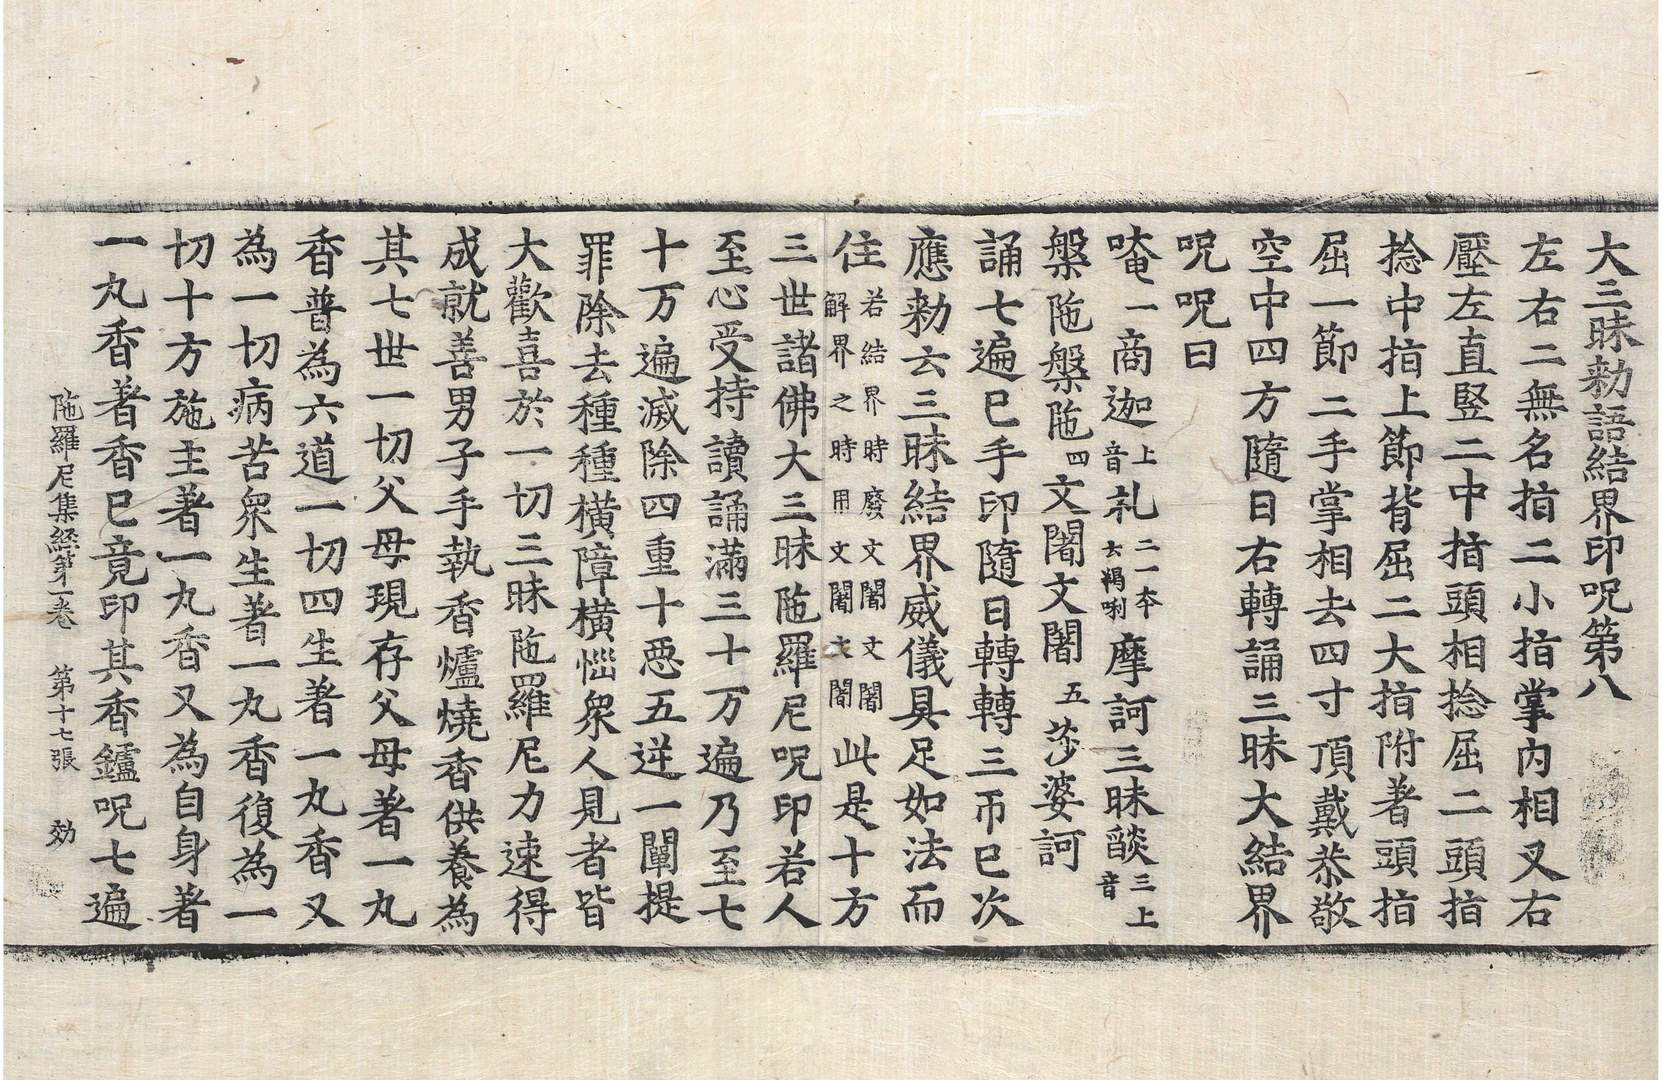 大三昧勑語結界印呪第八
左右二無名指二小指掌內相叉右
壓左直竪二中指頭相捻屈二頭指
捻中指上節背屈二大指附著頭指
屈一節二手掌相去四寸頂戴恭敬
空中四方隨日右轉誦三昧大結界
呪呪曰
唵一商迦上音礼二一本云羯唎摩訶三昧𦦨三上音
槃陁槃陁四文闍文闍五莎婆訶
誦七遍已手印隨日轉轉三帀已次
應勑云三昧結界威儀具足如法而
住若結界時廢文闍文闍解界之時用文闍文闍此是十方
三世諸佛大三昧陁羅尼呪印若人
至心受持讀誦滿三十万遍乃至七
十万遍滅除四重十惡五逆一闡提
罪除去種種橫障橫惱衆人見者皆
大歡喜於一切三昧陁羅尼力速得
成就善男子手執香爐燒香供養為
其七世一切父母現存父母著一丸
香普為六道一切四生著一丸香又
為一切病苦衆生著一丸香復為一
切十方施主著一丸香又為自身著
一丸香著香已竟印其香鑪呪七遍
陁羅尼集経第一卷　第十七張　効